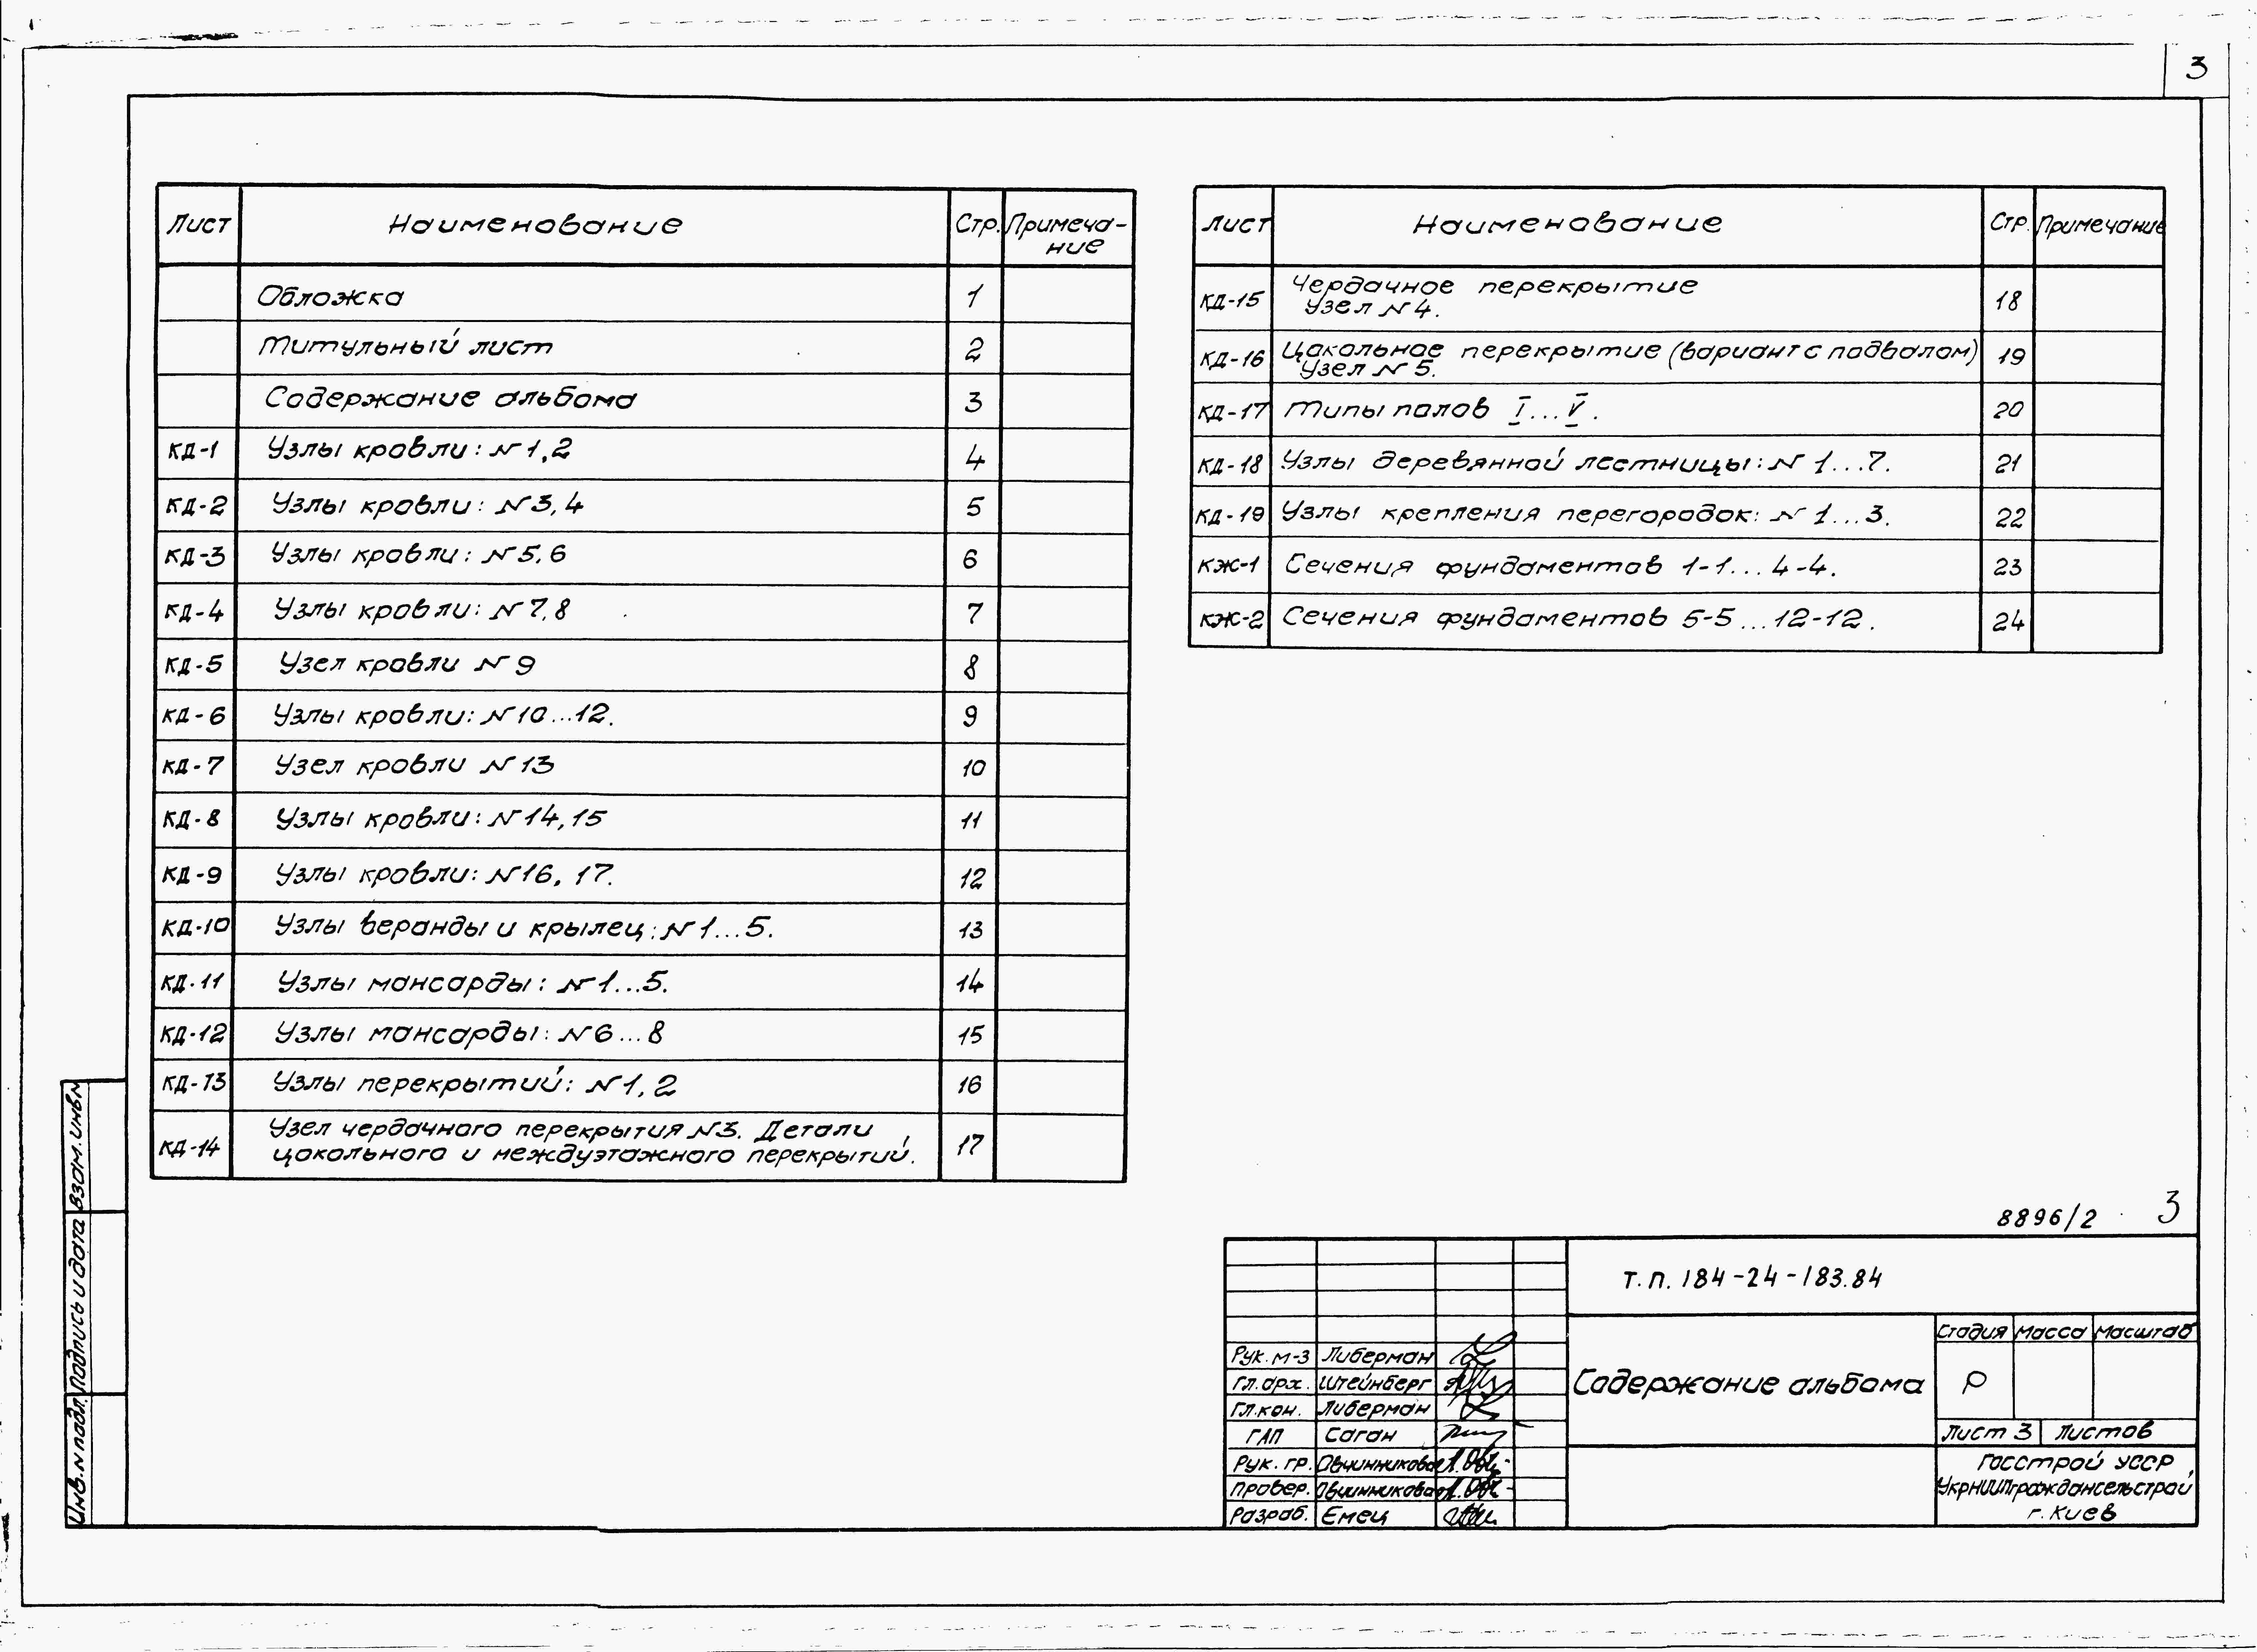 3
Лист Наименование Стр. Примеча-
ние
Обложка 1
Титульный лист 2
Содержание альбома 3
КД-1 Узлы кровли: N 1,2 4
КД-2 Узлы кровли: N 3,4 5
КД-3 Узлы кровли: N 5,6 6
КД-4 Узлы кровли: N 7,8 7
КД-5 Узел кровли N 9 8
КД-6 Узлы кровли: N 10...12. 9
КД-7 Узел кровли N 13 10
КД-8 Узлы кровли: N 14,15 11
КД-9 Узлы кровли: N 16, 17. 12
КД-10 Узлы веранды и крылец: N 1...5. 13
КД-11 Узлы мансарды: N 1...5. 14
КД-12 Узлы мансарды: N 6...8 15
КД-13 Узлы перекрытий: N 1, 2 16
КД-14 Узел чердачного перекрытия N3. Детали
цокольного и междуэтажного перекрытий. 17
Лист Наименование Стр. Примечание
КД-15 Чердачное перекрытие
Узел N 4. 18
КД-16 Цокольное перекрытие (вариант с подвалом)
Узел N 5. 19
КД-17 Типы полов I...V. 20
КД-18 Узлы деревянной лестницы: N 1...7. 21
КД-19 Узлы крепления перегородок: N 1...3. 22
КЖ-1 Сечения фундаментов 1-1...4-4. 23
КЖ-2 Сечения фундаментов 5-5...12-12. 24
8896/2 3
Т.П. 184-24-183.84
Рук. м-3 Либерман
Гл. арх. Штейнберг
Гл. кон. Либерман
ГАП Саган
Рук. гр. Овчинникова
Провер. Овчинникова
Разраб. Емец
Содержание альбома
Стадия Масса Масштаб
Р
Лист 3 Листов
Госстрой УССР
УкрНИИПграждансельстрой
г. Киев
Взам. инв. N
Подпись и дата
Инв. N подл.